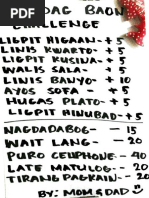 DAG BAON
CHALLENGE
LIGPIT HIGAAN-+ 5
LINIS KWARTO-+ 5
LIGPIT KUSINA-+ 5
WALIS SALA-+ 5
LINIS BANYO-+ 10
AYOS SOFA -+ 5
HUGAS PLATO-+ 5
LIGPIT HINUBAD-+ 5
NAGDADABOG- - 15
WAIT LANG- - 20
PURO CELLPHONE- -40
LATE MATULOG- -20
TIRANG PAGKAIN- -20
BY: MOM & DAD